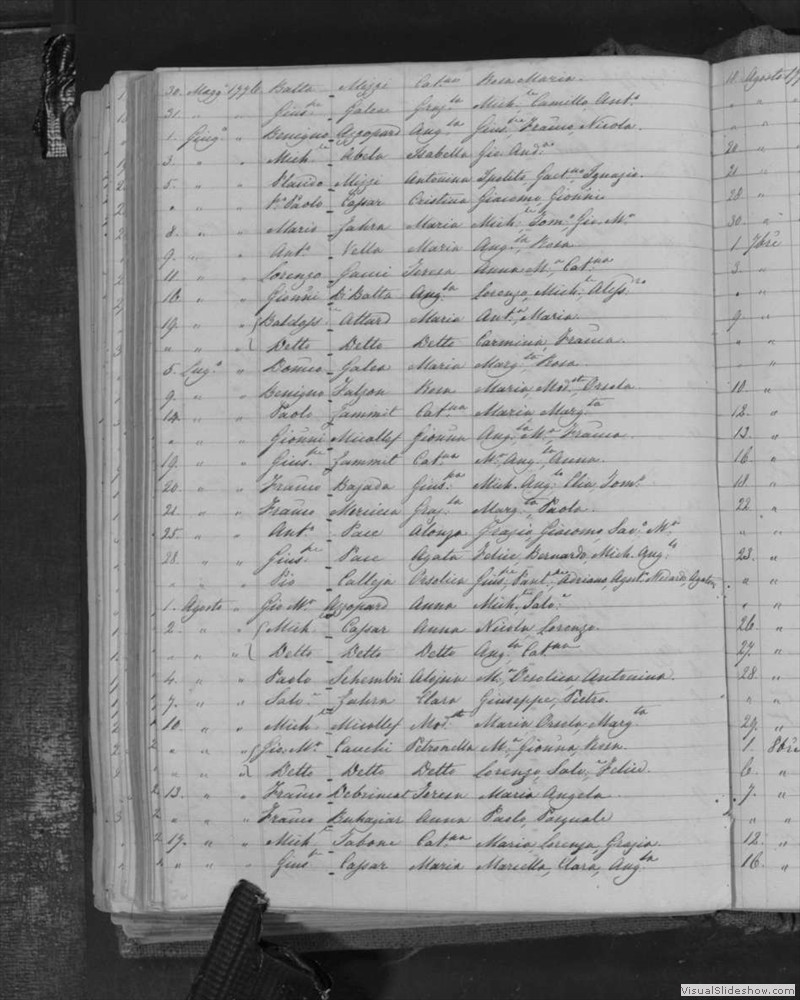 30. Magg.o 1774 Batta Mizzi Cat.na Rosa Maria.
31. " " Gius.pe Galea Graz.la Mich.le Camillo Ant.o
1. Giug.o " Benigno Azzopard Ang.la Gius.pe Franco Nicola.
3. " " Mich.le Abela Isabella Gio And.a
5. " " Placido Mizzi Antonina Ipolito Gaet.no Ignazio.
" " " P. Paolo Caspar Cristina Giacomo Gionni
8. " " Mario Zahra Maria Mich.le Tom.o Gio M.a
9. " " Ant.o Vella Maria Ang.la Rosa
11. " " Lorenzo Gauci Teresa Anna M.a Cat.na
16. " " Gionni Di Batta Ang.la Lorenzo, Mich.l Aless.ro
19. " " Baldass.re Attard Maria Ant.a Maria.
" " " Detto Detto Detto Carmina Franca.
5. Lug.o " Galea Maria Marg.ta Rosa
9. " " Benigno Falzon Rosa Maria, Mod.sta Orsola
14. " " Paolo Zammit Cat.na Maria Marg.ta
" " " Gionni Micallef Gionna Ang.la M.a Franca.
19. " " Gius.pe Zammit Cat.na M.a Ang.la Anna
20. " " Franco Bajada Gius.pa Mich. Ang.lo Elia Tom.o
21. " " Franco Merciera Graz.la Marg.ta Paola
25. " " Ant.o Pace Alonza Grazio, Giacomo, Sav.o M.a
28. " " Gius.pe Pace Agata Felice Bernardo, Mich. Ang.lo
" " " Pio Calleja Orsolica Gius.pe Pant. Adriano, Agost.o Medardo, Agaton
1. Agosto " Gio M.a Azzopard Anna Mich.le Salv.e
2. " " Mich. Caspar Anna Nicola Lorenzo.
" " " Detto Detto Detto Ang.la Cat.na
4. " " Paolo Schembri Aloina M.a Orsolica Antonina.
7. " " Salv.e Zahra Clara Giuseppe, Pietro.
10. " " Mich.le Micallef Mod.sta Maria Orsola, Marg.ta
" " " Gio. M.a Cauchi Petronella M.a Gionna, Rosa.
" " " Detto Detto Detto Lorenzo, Salv.e Felice.
13. " " Franco Debrincat Teresa Maria Angela
" " " Franco Buhagiar Anna Paolo, Pasquale
17. " " Mich.le Tabone Cat.na Maria Lorenza, Grazia.
" " " Gius.e Caspar Maria Mariella, Clara, Ang.la
18 Agosto 17
20 "
21 "
28 "
30. "
1. 7bre
3. "
" "
9. "
10. "
12. "
13. "
16. "
18. "
22. "
" "
23. "
" "
26 "
27. "
28. "
29. "
1. 8bre
6. "
7. "
" "
12. "
16. "
VisualSlideshow.com